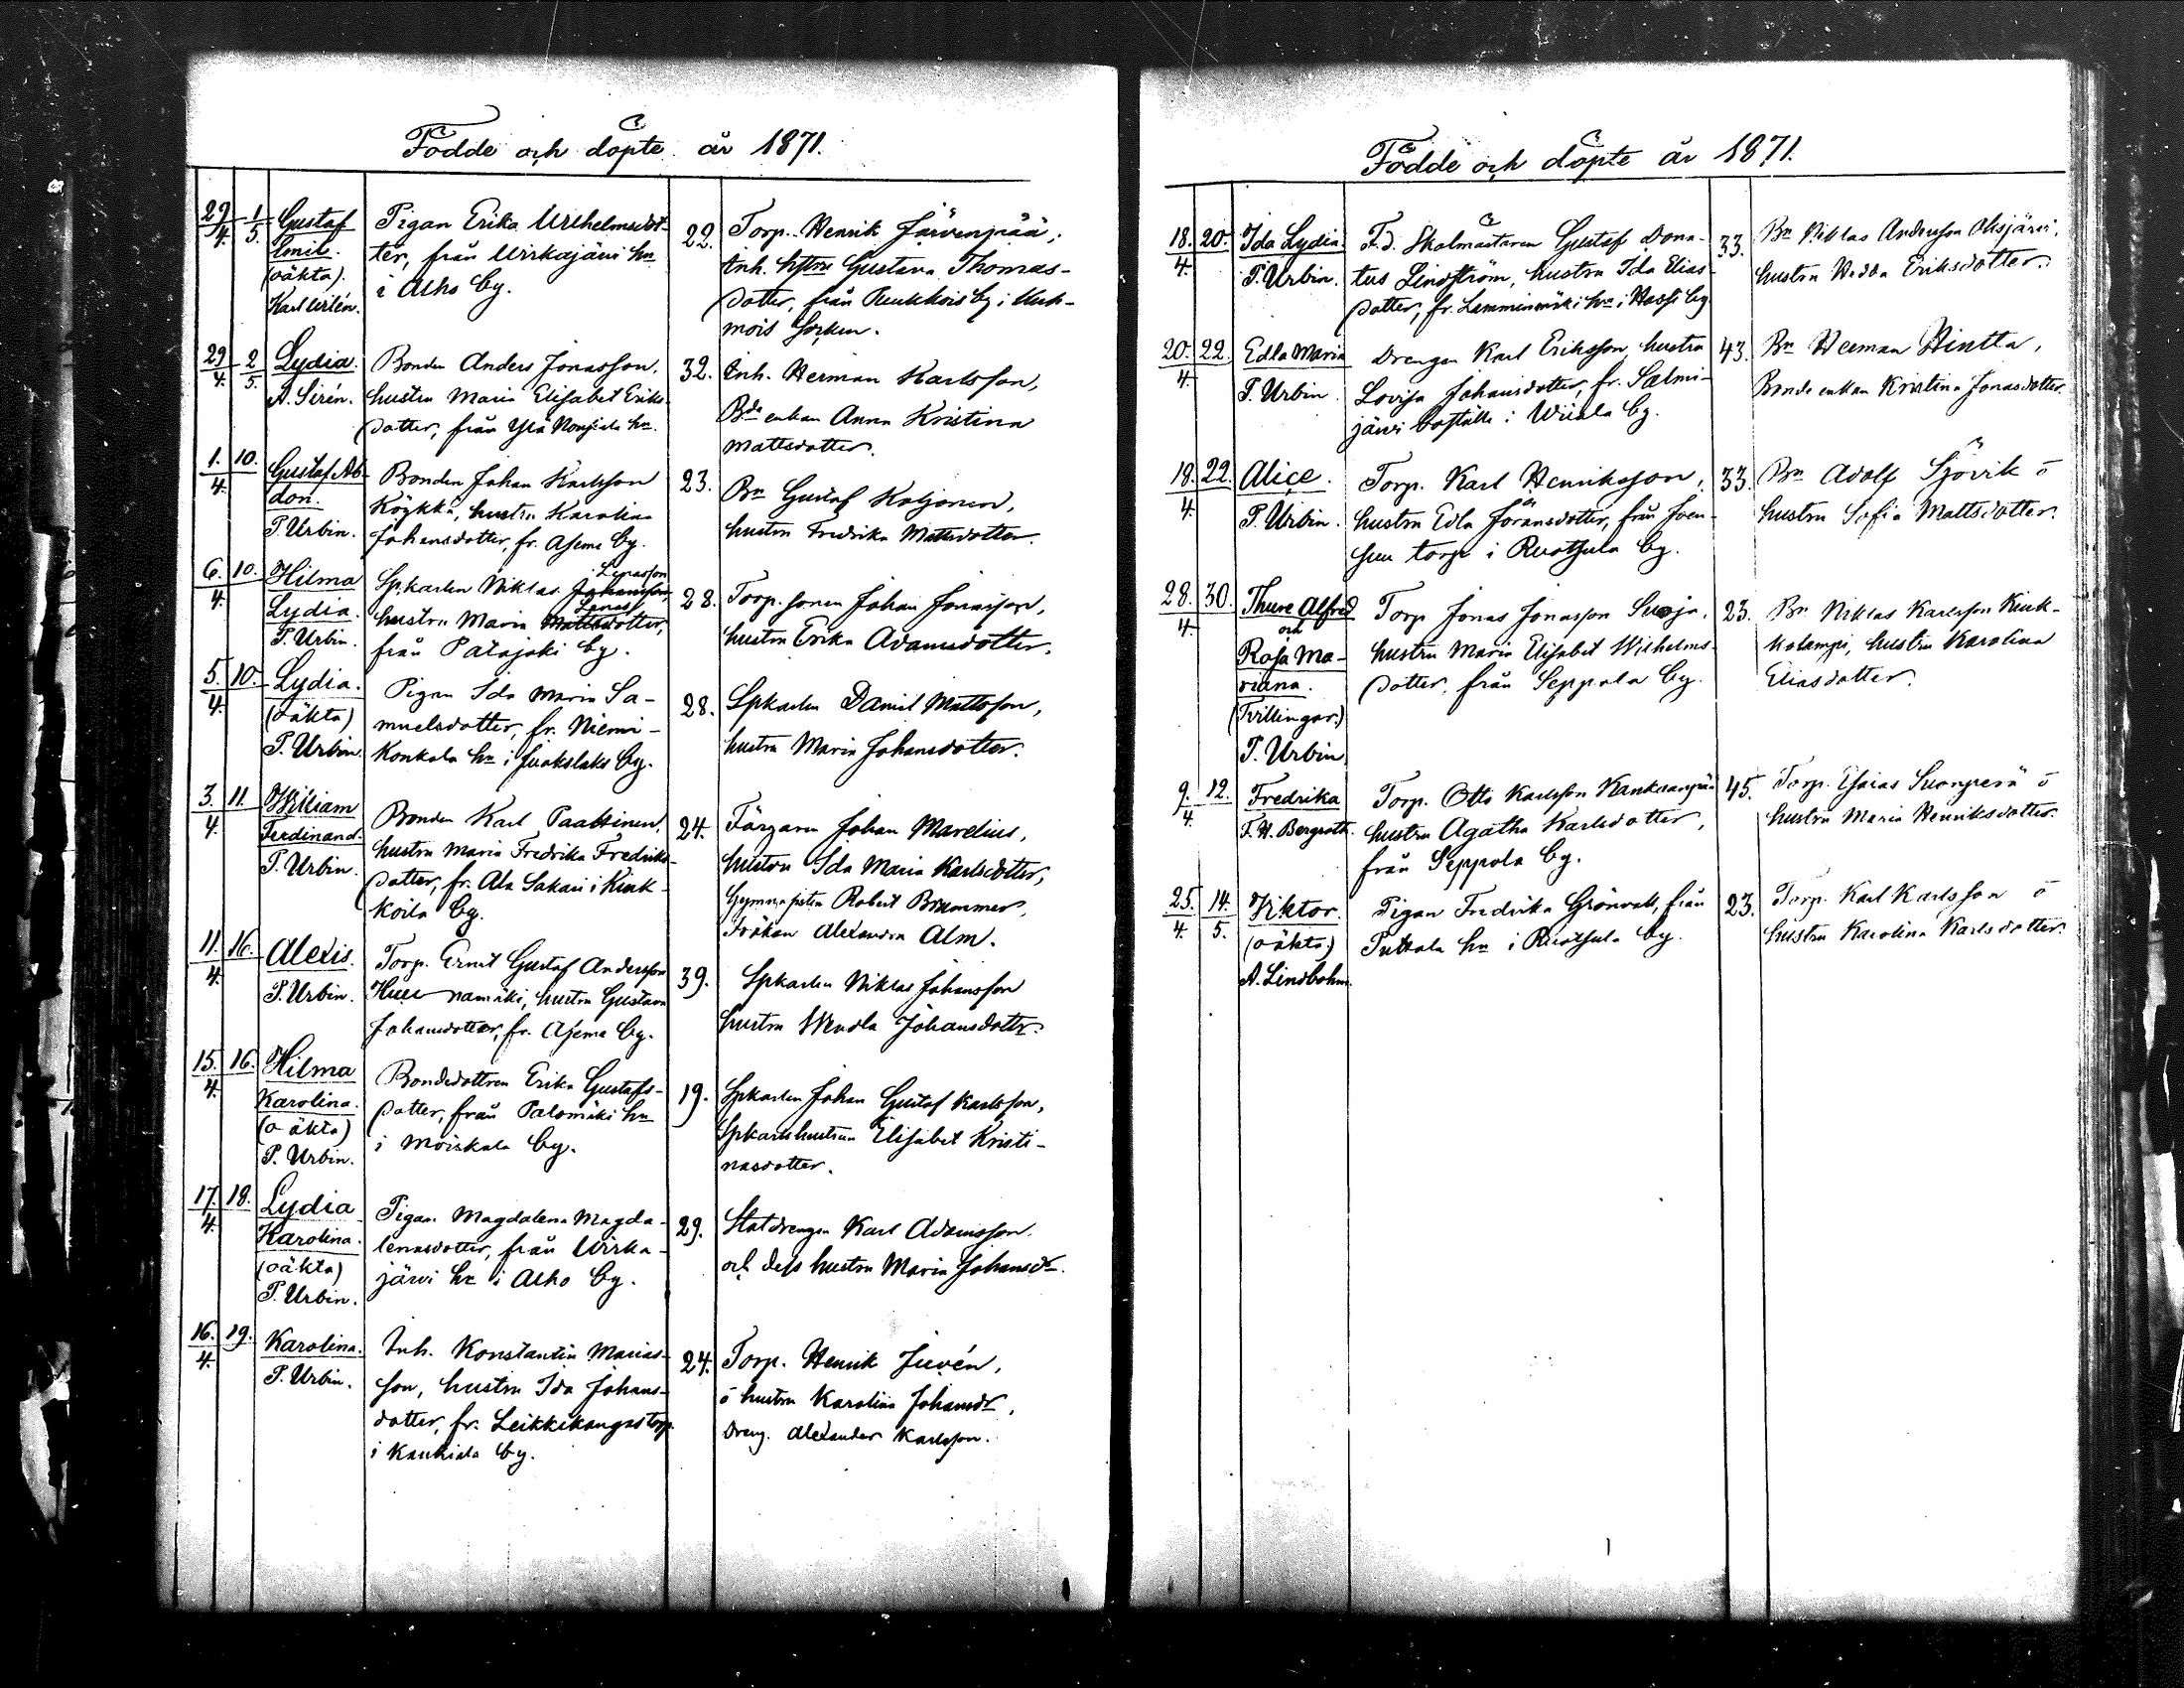 Födde och döpte år 1871.
29/4. 1/5. Gustaf Emil. (oäkta). Karl Wilén.
Pigan Erika Wilhelmsdot-
ter, från Wirkajäwi hn
i Alho by.
22. Torp. Henrik Järvenpää,
Inh. hstru Gustava Thomas-
dotter, från Puukkois by i Kuh-
mois socken.
29/4. 2/5. Lydia. A. Sirén.
Bonden Anders Jonasson,
hustru Maria Elisabet Eriks-
dotter, från Ylä Konsiala hn.
32. Inh. Herman Karlsson,
Bde enkan Anna Kristina
Mattsdotter.
1./4. 10. Gustaf Ab-
don.
P. Urbin.
Bonden Johan Karlsson
Köykkä, hustru Karolina
Johansdotter, fr. Aseme by.
23. Bn Gustaf Koljonen,
hustru Fredrika Mattsdotter.
6./4. 10. Hilma
Lydia.
P. Urbin.
Lenasson
Spkarlen Niklas Johansson,
Lenas
hustru Maria Mattsdotter,
från Patajoki by.
28. Torp. sonen Johan Jonasson,
hustru Erika Adamsdotter.
5./4. 10. Lydia.
(oäkta)
P. Urbin.
Pigan Ida Maria Sa-
muelsdotter, fr. Niemi-
Konkola hn i Juokslaks by.
28. Spkarlen Daniel Mattsson,
hustru Maria Johansdotter.
3./4. 11. William
Ferdinand.
P. Urbin.
Bonden Karl Paattinen,
hustru Maria Fredrika Fredriks-
dotter, fr. Ala Sakari i Kuk-
koila by.
24. Färgaren Johan Marelius,
hustru Ida Maria Karlsdotter,
Gymnasisten Robert Brummer,
Fröken Alexandra Alm.
11./4. 16. Alexis.
P. Urbin.
Torp. Ernst Gustaf Andersson
namäki, hustru Gustava
Johansdotter, fr. Aseme by.
39. Spkarlen Niklas Johansson
hustru Wendla Johansdotter.
15./4. 16. Hilma
Karolina.
(oäkta)
P. Urbin.
Bondedottren Erika Gustafs-
dotter, från Palomäki hn
i Moiskala by.
19. Spkarlen Johan Gustaf Karlsson,
Spkarlshustrun Elisabet Kristi-
nasdotter.
17./4. 18. Lydia
Karolina.
(oäkta)
P. Urbin.
Pigan Magdalena Magda-
lenasdotter, från Wirka-
järvi hn i Alho by.
29. Statdrengen Karl Adamsson
och dess hustru Maria Johansdr.
16./4. 19. Karolina.
P. Urbin.
Inh. Konstantin Marias-
son, hustru Ida Johans-
dotter, fr. Leikkikangas torp
i Kauhiala by.
24. Torp. Henrik Juvén,
o hustru Karolina Johansdr,
Dreng. Alexander Karlsson.
Födde och döpte år 1871.
18./4. 20. Ida Lydia.
P. Urbin.
F.d. Skolmästaren Gustaf Dona-
tus Lindström, hustru Ida Elias-
dotter, fr. Lamminmäki hn i Hassi by
33. Bn Niklas Andersson Ohsjärvi,
hustru Hedda Eriksdotter.
20./4. 22. Edla Maria
P. Urbin.
Drengen Karl Eriksson, hustru
Lovisa Johansdotter, fr. Salmi-
järvi boställe i Wiiala by.
43. Bn Herman Hintta,
Bonde enkan Kristina Jonasdotter.
18./4. 22. Alice.
P. Urbin.
Torp. Karl Henriksson,
hustru Edla Göransdotter, från Joen-
suu torp i Ruotsula by.
33. Bn Adolf Sjövik o
hustru Sofia Mattsdotter.
28./4. 30. Thure Alfred
och
Rosa Ma-
riana.
(Tvillingar.)
P. Urbin
Torp. Jonas Jonasson Suoja,
hustru Maria Elisabet Wilhelms-
dotter, från Seppola by.
23. Bn Niklas Karlsson Kuuk-
kolampi, hustru Karolina
Eliasdotter.
9./4. 12. Fredrika
F. H. Bergroth.
Torp. Otto Karlsson Kankaanpää
hustru Agatha Karlsdotter,
från Seppola by.
45. Torp. Esaias Suonperä o
hustru Maria Henriksdotter.
25./4. 14./5. Viktor.
(oäkta.)
A. Lindbohm.
Pigan Fredrika Grönvall, från
Puttola hn i Ruotsula by.
23. Torp. Karl Karlsson o
hustru Karolina Karlsdotter.